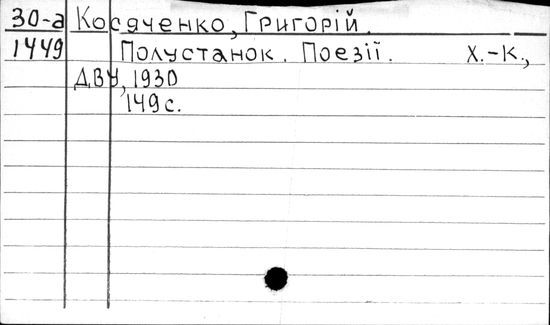 30-а Косяченко, Григорій.
1449 Полустанок. Поезії. Х.-К.,
ДВУ, 1930
149 с.